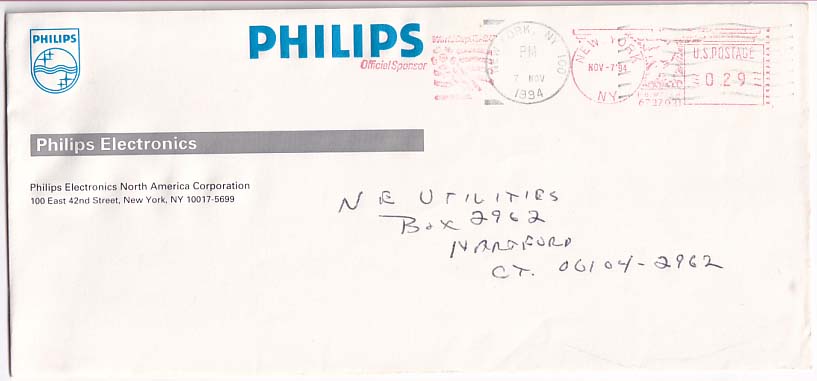 PHILIPS
PHILIPS
Official Sponsor
NEW YORK, NY 100
PM
7 NOV
1994
NEW YORK
NOV-7'94
NY
U.S.POSTAGE
029
Philips Electronics
Philips Electronics North America Corporation
100 East 42nd Street, New York, NY 10017-5699
N E UTILITIES
Box 2962
HARTFORD
CT. 06104-2962